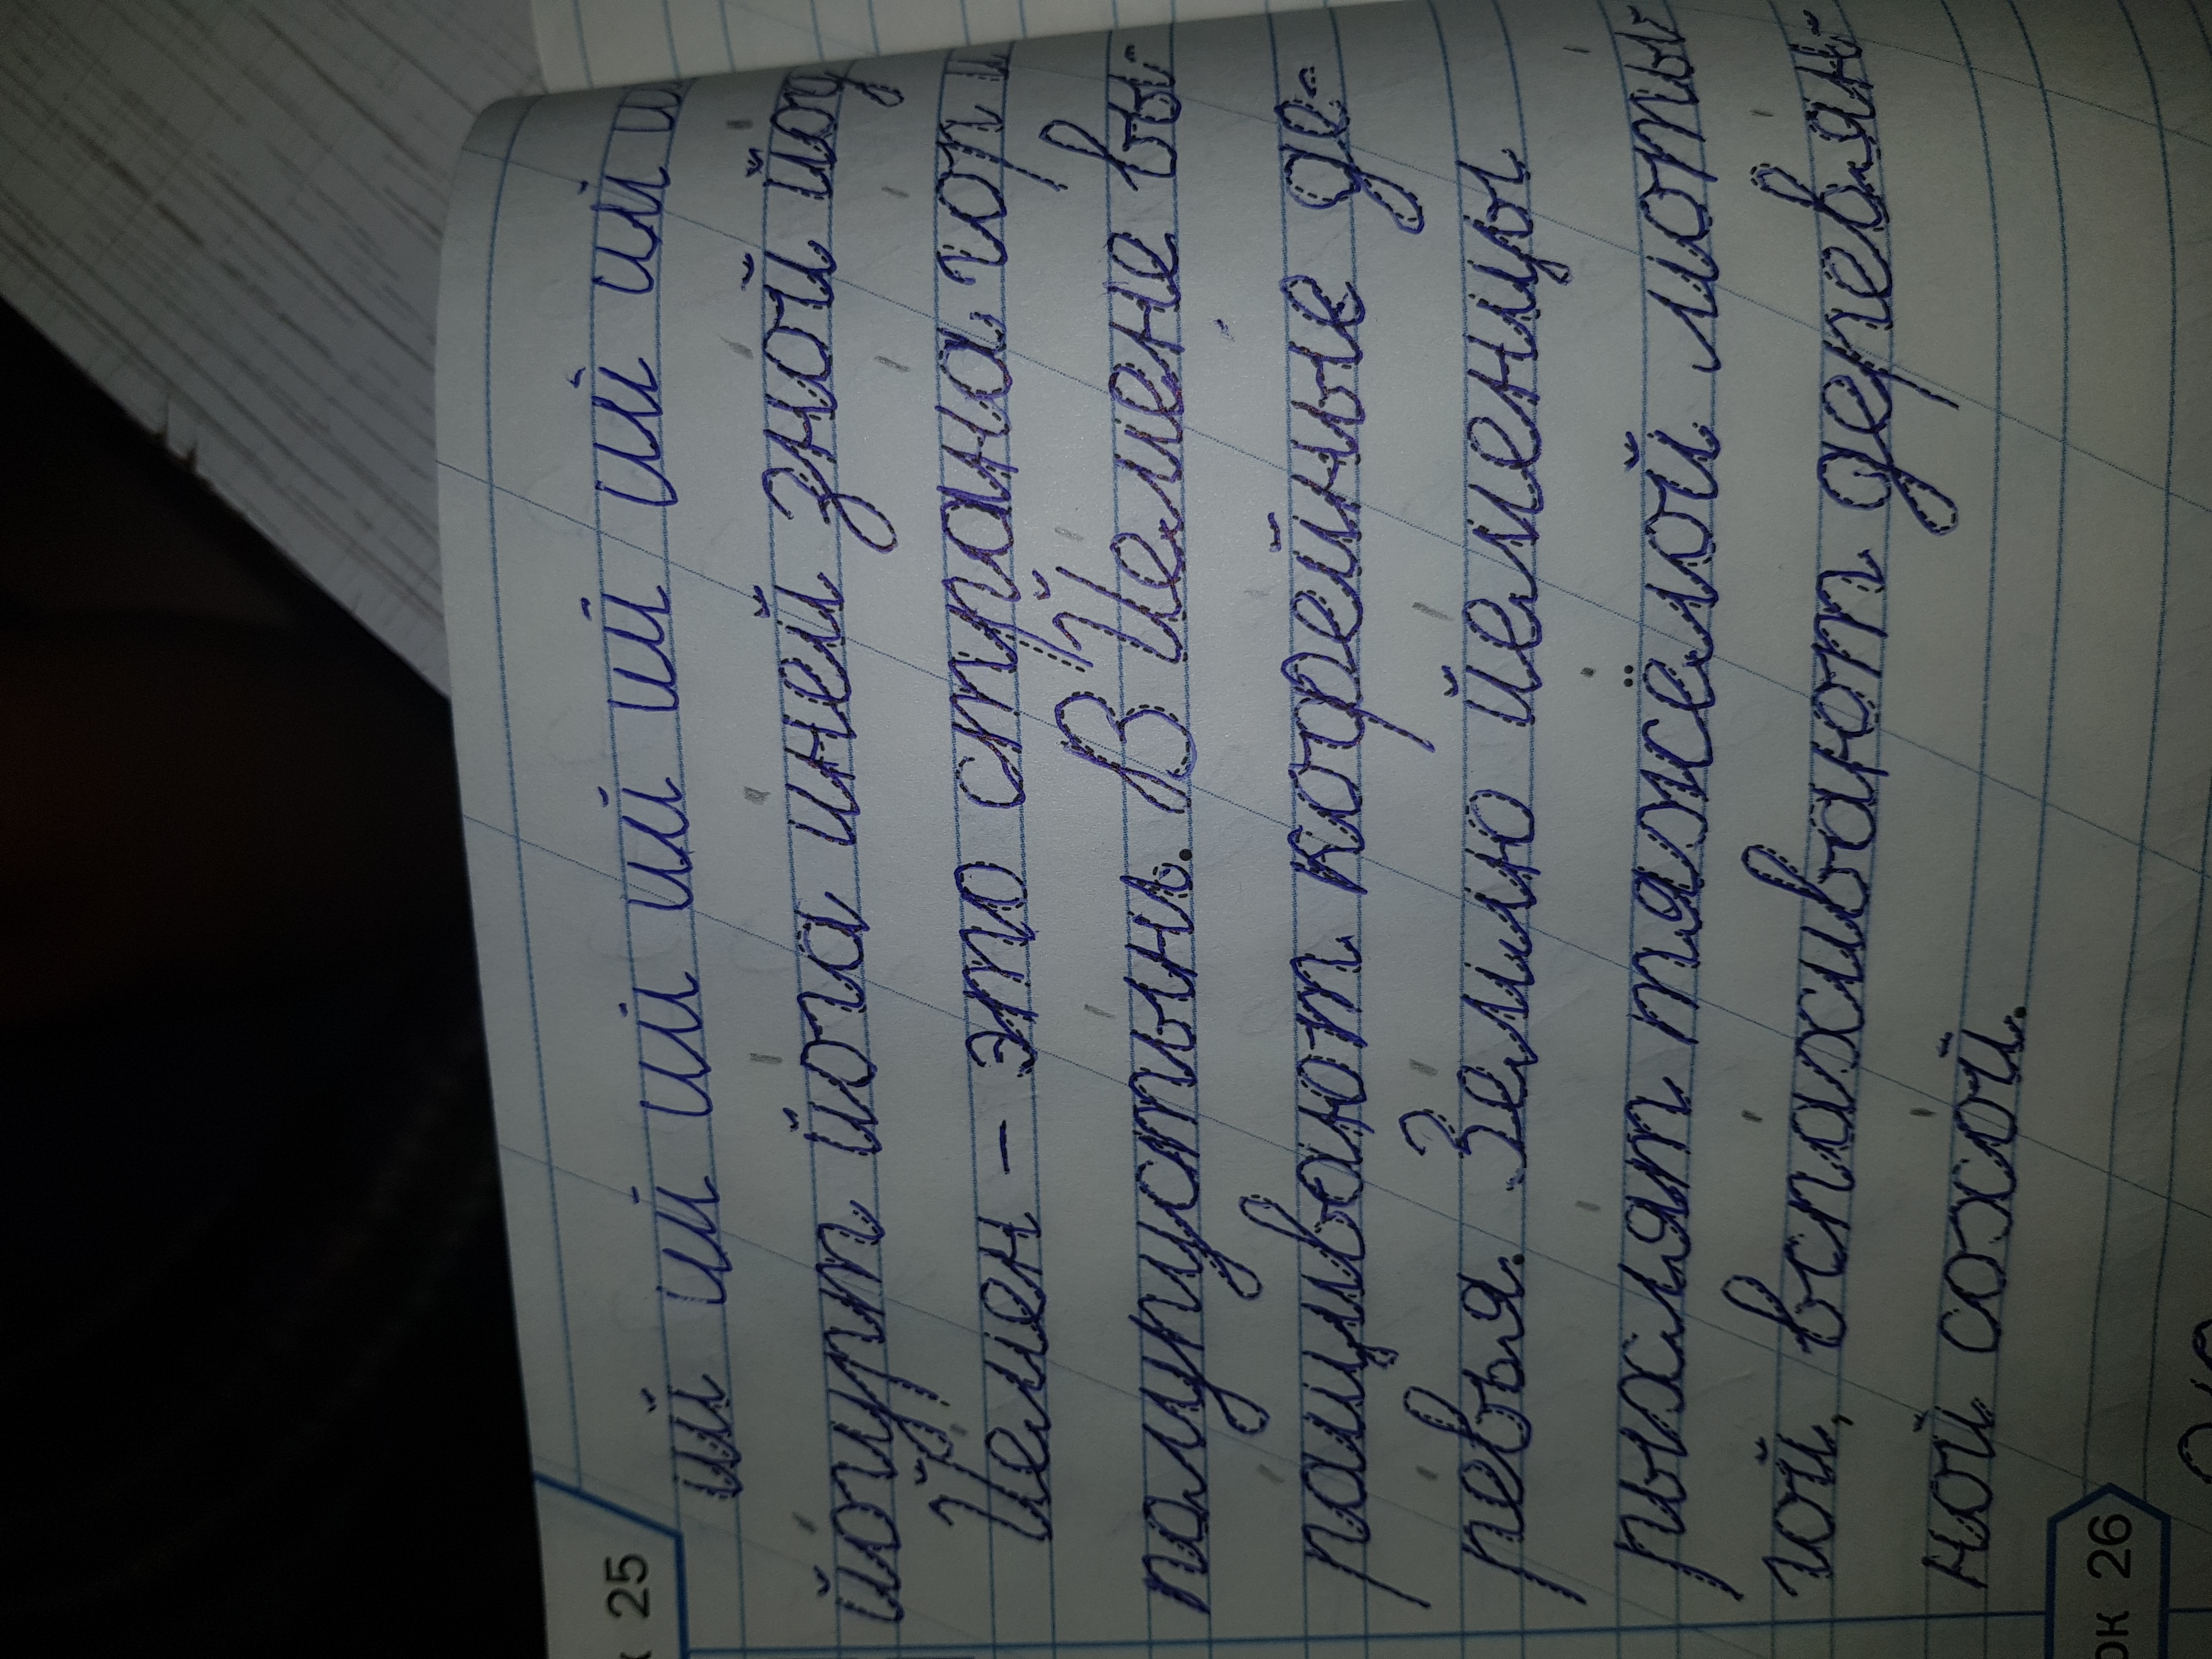 25
ий ий ий ий ий ий ий
йогурт йога иней зной йод
Йемен – это страна гор и
полупустынь. В Йемене вы-
ращивают кофейные де-
ревья. Землю йеменцы
рыхлят тяжёлой моты-
гой, вспахивают деревян-
ной сохой.
26